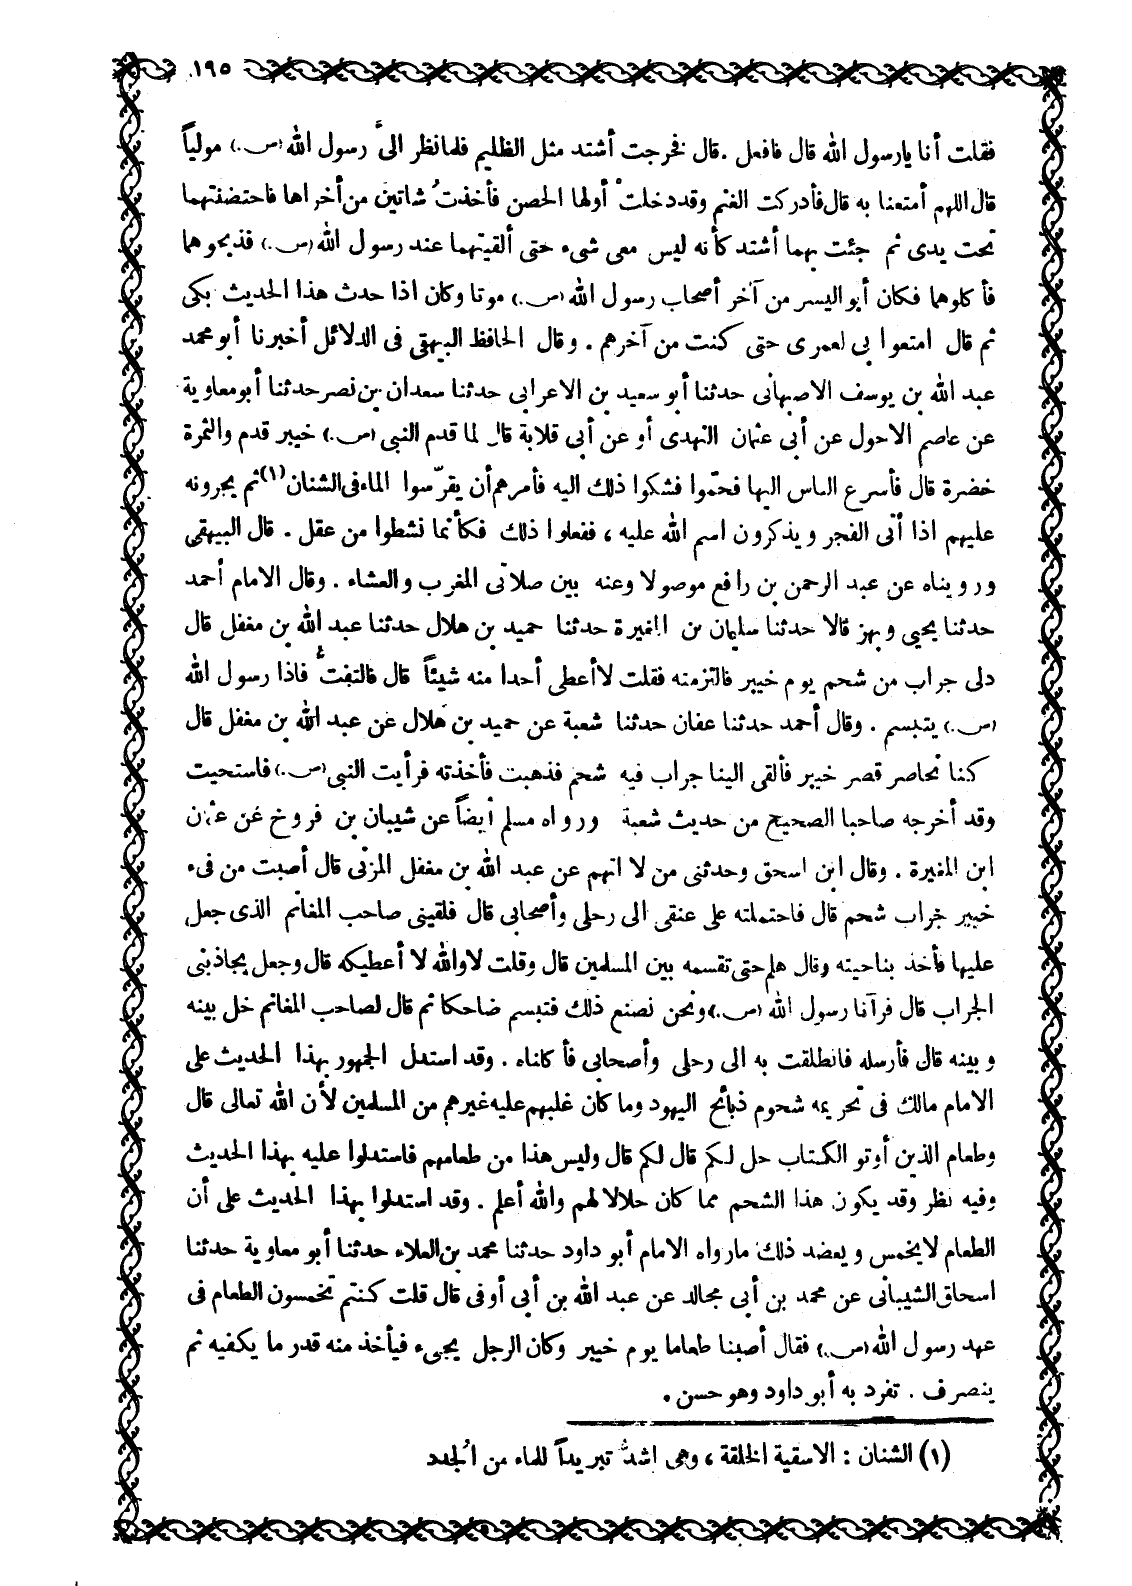 ١٩٥
فقلت أنا يارسول الله قال فافعل . قال فخرجت أشتد مثل الظليم فلما نظر الىَّ رسول الله (ص.) مولياً
قال اللهم أمتعنا به قال فأدركت الغنم وقد دخلتْ أولها الحصن فأخذتُ شاتين من أخراها فاحتضنتهما
تحت يدى ثم جئت بهما أشتد كأنه ليس معى شىء حتى ألقيتهما عند رسول الله (ص.) فذبحوهما
فأكلوهما فكان أبو اليسر من آخر أصحاب رسول الله (ص.) موتا وكان اذا حدث هذا الحديث بكى
ثم قال امتعوا بى لعمرى حتى كنت من آخرهم . وقال الحافظ البيهقى فى الدلائل أخبرنا أبو محمد
عبد الله بن يوسف الاصبهانى حدثنا أبو سعيد بن الاعرابى حدثنا سعدان بن نصر حدثنا أبو معاوية
عن عاصم الاحول عن أبى عثمان النهدى أو عن أبى قلابة قال لما قدم النبى (ص.) خيبر قدم والثمرة
خضرة قال فأسرع الناس اليها فحمّوا فشكوا ذلك اليه فأمرهم أن يقرّسوا الماء فى الشنان (١) ثم يجرونه
عليهم اذا أتى الفجر ويذكرون اسم الله عليه ، ففعلوا ذلك فكأنما نشطوا من عقل . قال البيهقى
ورويناه عن عبد الرحمن بن رافع موصولا وعنه بين صلاتى المغرب والعشاء . وقال الامام أحمد
حدثنا يحيى وبهز قالا حدثنا سليمان بن المغيرة حدثنا حميد بن هلال حدثنا عبد الله بن مغفل قال
دلى جراب من شحم يوم خيبر فالتزمته فقلت لا أعطى أحدا منه شيئاً قال فالتفتُّ فاذا رسول الله
(ص.) يتبسم . وقال أحمد حدثنا عفان حدثنا شعبة عن حميد بن هلال عن عبد الله بن مغفل قال
كنا نحاصر قصر خيبر فألقى الينا جراب فيه شحم فذهبت فأخذته فرأيت النبى (ص.) فاستحيت
وقد أخرجه صاحبا الصحيح من حديث شعبة ورواه مسلم أيضاً عن شيبان بن فروخ عن عثمان
ابن المغيرة . وقال ابن اسحق وحدثنى من لا اتهم عن عبد الله بن مغفل المزنى قال أصبت من فىء
خيبر جراب شحم قال فاحتملته على عنقى الى رحلى وأصحابى قال فلقينى صاحب المغانم الذى جعل
عليها فأخذ بناحيته وقال هلم حتى تقسمه بين المسلمين قال وقلت لا والله لا أعطيكه قال وجعل يجاذبنى
الجراب قال فرآنا رسول الله (ص.) ونحن نصنع ذلك فتبسم ضاحكا ثم قال لصاحب المغانم خل بينه
وبينه قال فأرسله فانطلقت به الى رحلى وأصحابى فأكلناه . وقد استدل الجمهور بهذا الحديث على
الامام مالك فى تحريمه شحوم ذبائح اليهود وما كان غلبهم عليه غيرهم من المسلمين لأن الله تعالى قال
وطعام الذين أوتو الكتاب حل لكم قال لكم قال وليس هذا من طعامهم فاستدلوا عليه بهذا الحديث
وفيه نظر وقد يكون هذا الشحم مما كان حلالا لهم والله أعلم . وقد استدلوا بهذا الحديث على أن
الطعام لا يخمس ويعضد ذلك مارواه الامام أبو داود حدثنا محمد بن العلاء حدثنا أبو معاوية حدثنا
اسحاق الشيبانى عن محمد بن أبى مجالد عن عبد الله بن أبى أوفى قال قلت كنتم تخمسون الطعام فى
عهد رسول الله (ص.) فقال أصبنا طعاما يوم خيبر وكان الرجل يجىء فيأخذ منه قدر ما يكفيه ثم
ينصرف . تفرد به أبو داود وهو حسن .
(١) الشنان : الاسقية الخلقة ، وهى اشدُّ تبريداً للماء من الُجدد